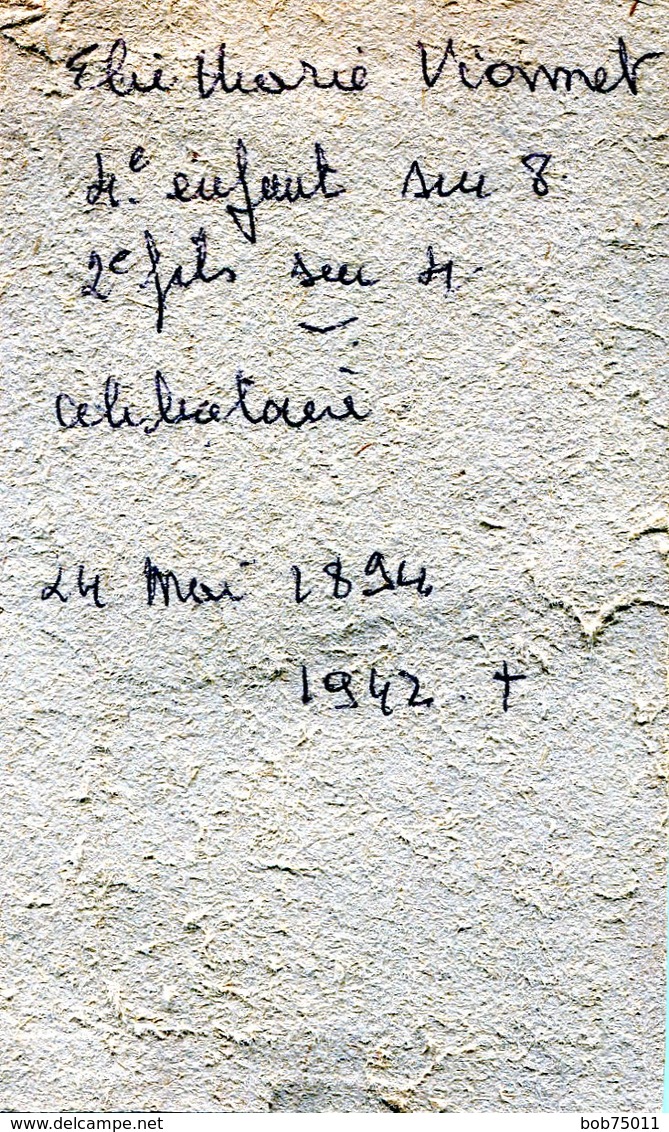 Elie Marie Vionnet
4.e enfant sur 8.
2e fils sur 4.
célibataire
24 Mai 1894
1942. +
delcampe.net
bob75011